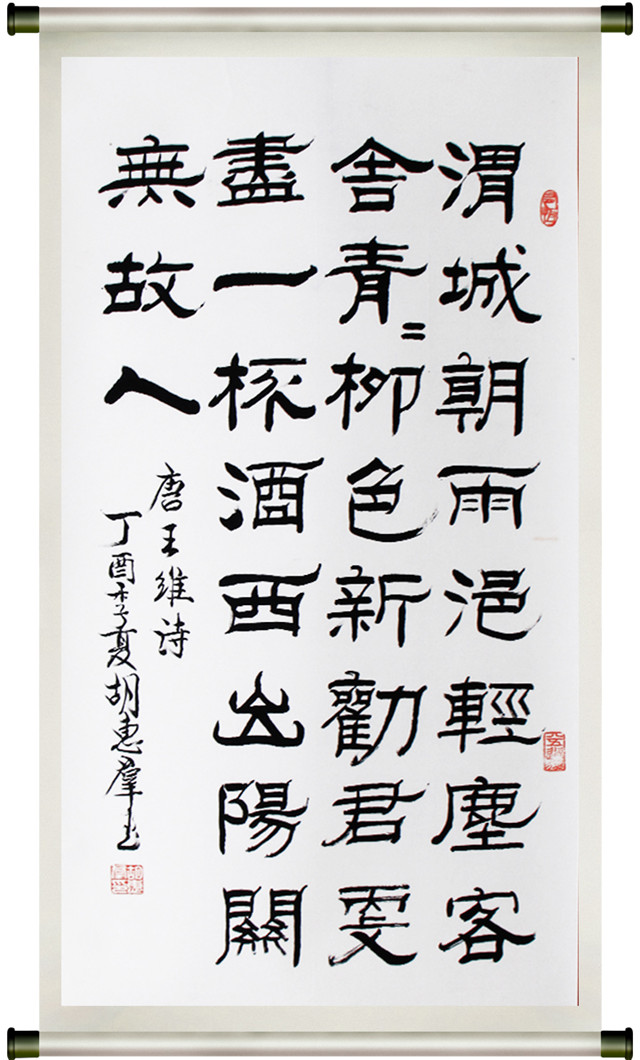 渭城朝雨浥輕塵客
舍青〻柳色新勸君更
盡一杯酒西出陽關
無故人
唐王維詩
丁酉季夏胡惠羣書